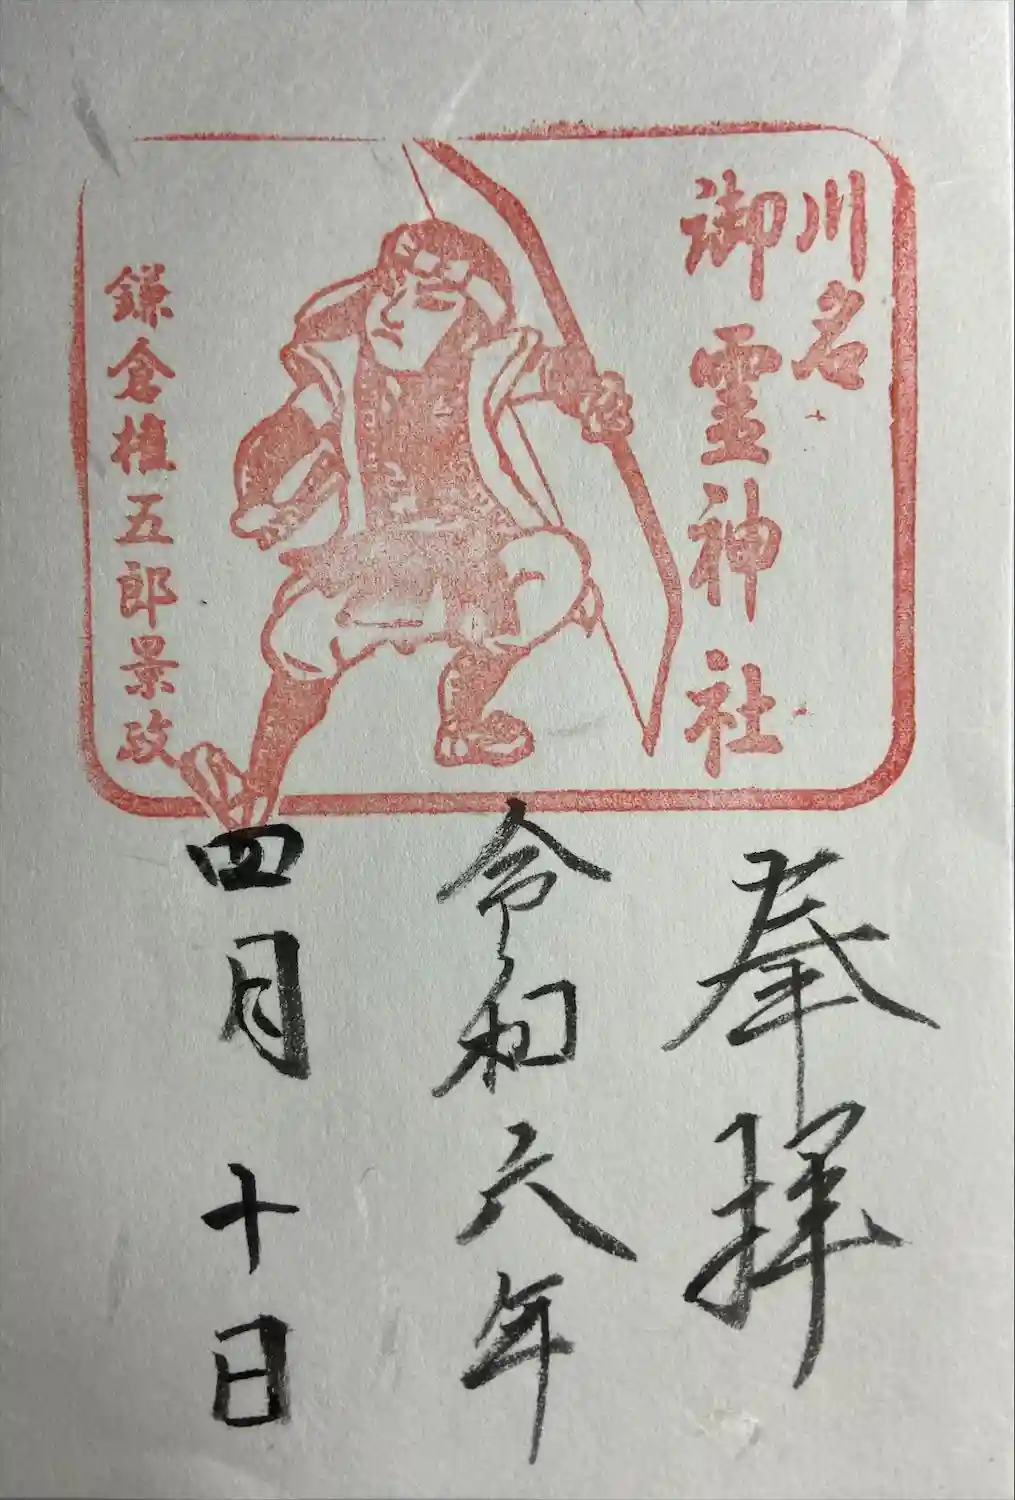 川名
御霊神社
鎌倉権五郎景政
奉拝
令和六年
四月十日